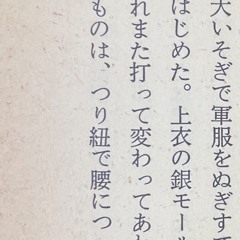 大いそぎで軍服をぬぎすて
はじめた。上衣の銀モール
れまた打って変わってあ
ものは、つり紐で腰につ